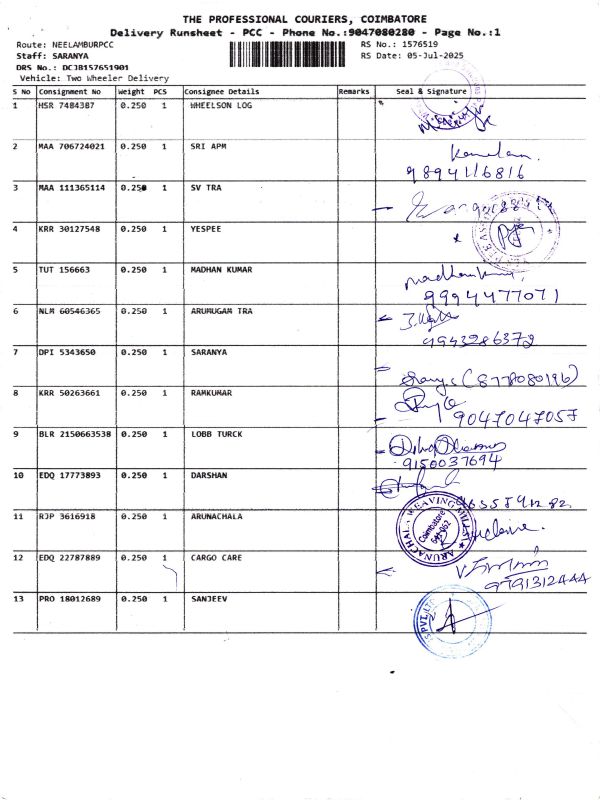 THE PROFESSIONAL COURIERS, COIMBATORE
Delivery Runsheet - PCC - Phone No.:9047080280 - Page No.:1
Route: NEELAMBURPCC
RS No.: 1576519
Staff: SARANYA
RS Date: 05-Jul-2025
DRS No.: DCJB157651901
Vehicle: Two Wheeler Delivery
S No Consignment No Weight PCS Consignee Details Remarks Seal & Signature
1 HSR 7484387 0.250 1 WHEELSON LOG
2 MAA 706724021 0.250 1 SRI APM
9894116816
3 MAA 111365114 0.250 1 SV TRA
4 KRR 30127548 0.250 1 YESPEE
5 TUT 156663 0.250 1 MADHAN KUMAR
madhan
9994477071
6 NLM 60546365 0.250 1 ARUMUGAM TRA
9943286372
7 DPI 5343650 0.250 1 SARANYA
(8778080196)
8 KRR 50263661 0.250 1 RAMKUMAR
9047047057
9 BLR 2150663538 0.250 1 LOBB TURCK
9150037694
10 EDQ 17773893 0.250 1 DARSHAN
11 RJP 3616918 0.250 1 ARUNACHALA
ARUNACHALA WEAVING MILLS
Coimbatore
12 EDQ 22787889 0.250 1 CARGO CARE
9791312444
13 PRO 18012689 0.250 1 SANJEEV
PVT LTD